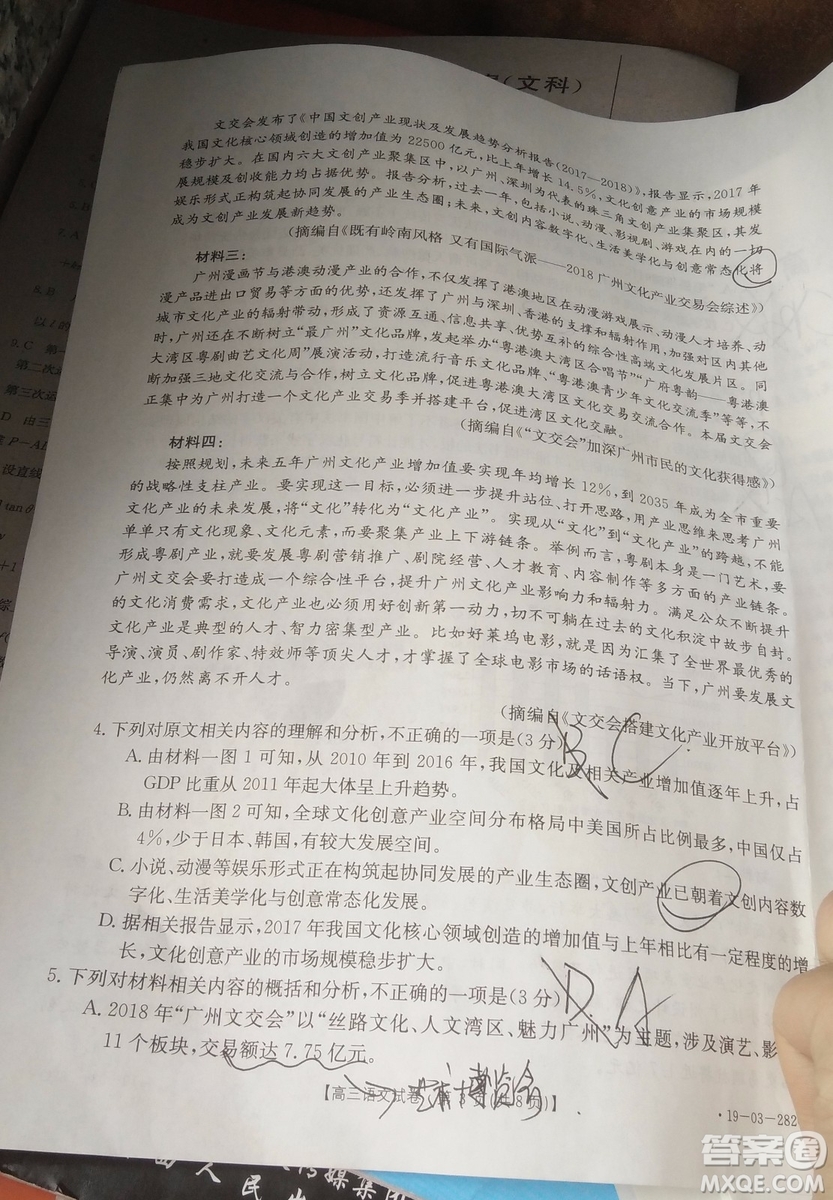 (文科)
文交会发布了《中国文创产业现状及发展趋势分析报告(2017—2018)》,报告显示,2017年
我国文化核心领域创造的增加值为22500亿元,比上年增长14.5%,文化创意产业的市场规模
稳步扩大。在国内六大文创产业聚集区中,以广州、深圳为代表的珠三角文创产业集聚区,其发
展规模及创收能力均占据优势。报告分析,过去一年,包括小说、动漫、影视剧、游戏在内的一切
娱乐形式正构筑起协同发展的产业生态圈;未来,文创内容数字化、生活美学化与创意常态化将
成为文创产业发展新趋势。
(摘编自《既有岭南风格 又有国际气派——2018广州文化产业交易会综述》)
材料三:
广州漫画节与港澳动漫产业的合作,不仅发挥了港澳地区在动漫游戏展示、动漫人才培养、动
漫产品进出口贸易等方面的优势,还发挥了广州与深圳、香港的支撑和辐射作用,加强对区内其他
城市文化产业的辐射带动,形成了资源互通、信息共享、优势互补的综合性高端文化发展片区。同
时,广州还在不断树立“最广州”文化品牌,发起举办“粤港澳大湾区合唱节”“广府粤韵——粤港澳
大湾区粤剧曲艺文化周”展演活动,打造流行音乐文化品牌,“粤港澳青少年文化交流季”等等,不
断加强三地文化交流与合作,树立文化品牌,促进粤港澳大湾区文化交易交流合作。本届文交会
正集中为广州打造一个文化产业交易季并搭建平台,促进湾区文化交融。
(摘编自《“文交会”加深广州市民的文化获得感》)
材料四:
按照规划,未来五年广州文化产业增加值要实现年均增长12%,到2035年成为全市重要
的战略性支柱产业。要实现这一目标,必须进一步提升站位、打开思路,用产业思维来思考广州
文化产业的未来发展,将“文化”转化为“文化产业”。实现从“文化”到“文化产业”的跨越,不能
单单只有文化现象、文化元素,而要聚集产业上下游链条。举例而言,粤剧本身是一门艺术,要
形成粤剧产业,就要发展粤剧营销推广、剧院经营、人才教育、内容制作等多方面的产业链条。
广州文交会要打造成一个综合性平台,提升广州文化产业影响力和辐射力。满足公众不断提升
的文化消费需求,文化产业也必须用好创新第一动力,切不可躺在过去的文化积淀中故步自封。
文化产业是典型的人才、智力密集型产业。比如好莱坞电影,就是因为汇集了全世界最优秀的
导演、演员、剧作家、特效师等顶尖人才,才掌握了全球电影市场的话语权。当下,广州要发展文
化产业,仍然离不开人才。
(摘编自《文交会搭建文化产业开放平台》)
4. 下列对原文相关内容的理解和分析,不正确的一项是(3分) B C
A. 由材料一图1可知,从2010年到2016年,我国文化及相关产业增加值逐年上升,占
GDP比重从2011年起大体呈上升趋势。
B. 由材料一图2可知,全球文化创意产业空间分布格局中美国所占比例最多,中国仅占
4%,少于日本、韩国,有较大发展空间。
C. 小说、动漫等娱乐形式正在构筑起协同发展的产业生态圈,文创产业已朝着文创内容数
字化、生活美学化与创意常态化发展。
D. 据相关报告显示,2017年我国文化核心领域创造的增加值与上年相比有一定程度的增
长,文化创意产业的市场规模稳步扩大。
5. 下列对材料相关内容的概括和分析,不正确的一项是(3分) D A
A. 2018年“广州文交会”以“丝路文化、人文湾区、魅力广州”为主题,涉及演艺、影
11个板块,交易额达7.75亿元。
【高三语文试卷 第3页(共8页)】
艺术博览会
·19-03-282
答案圈
MXQE.COM